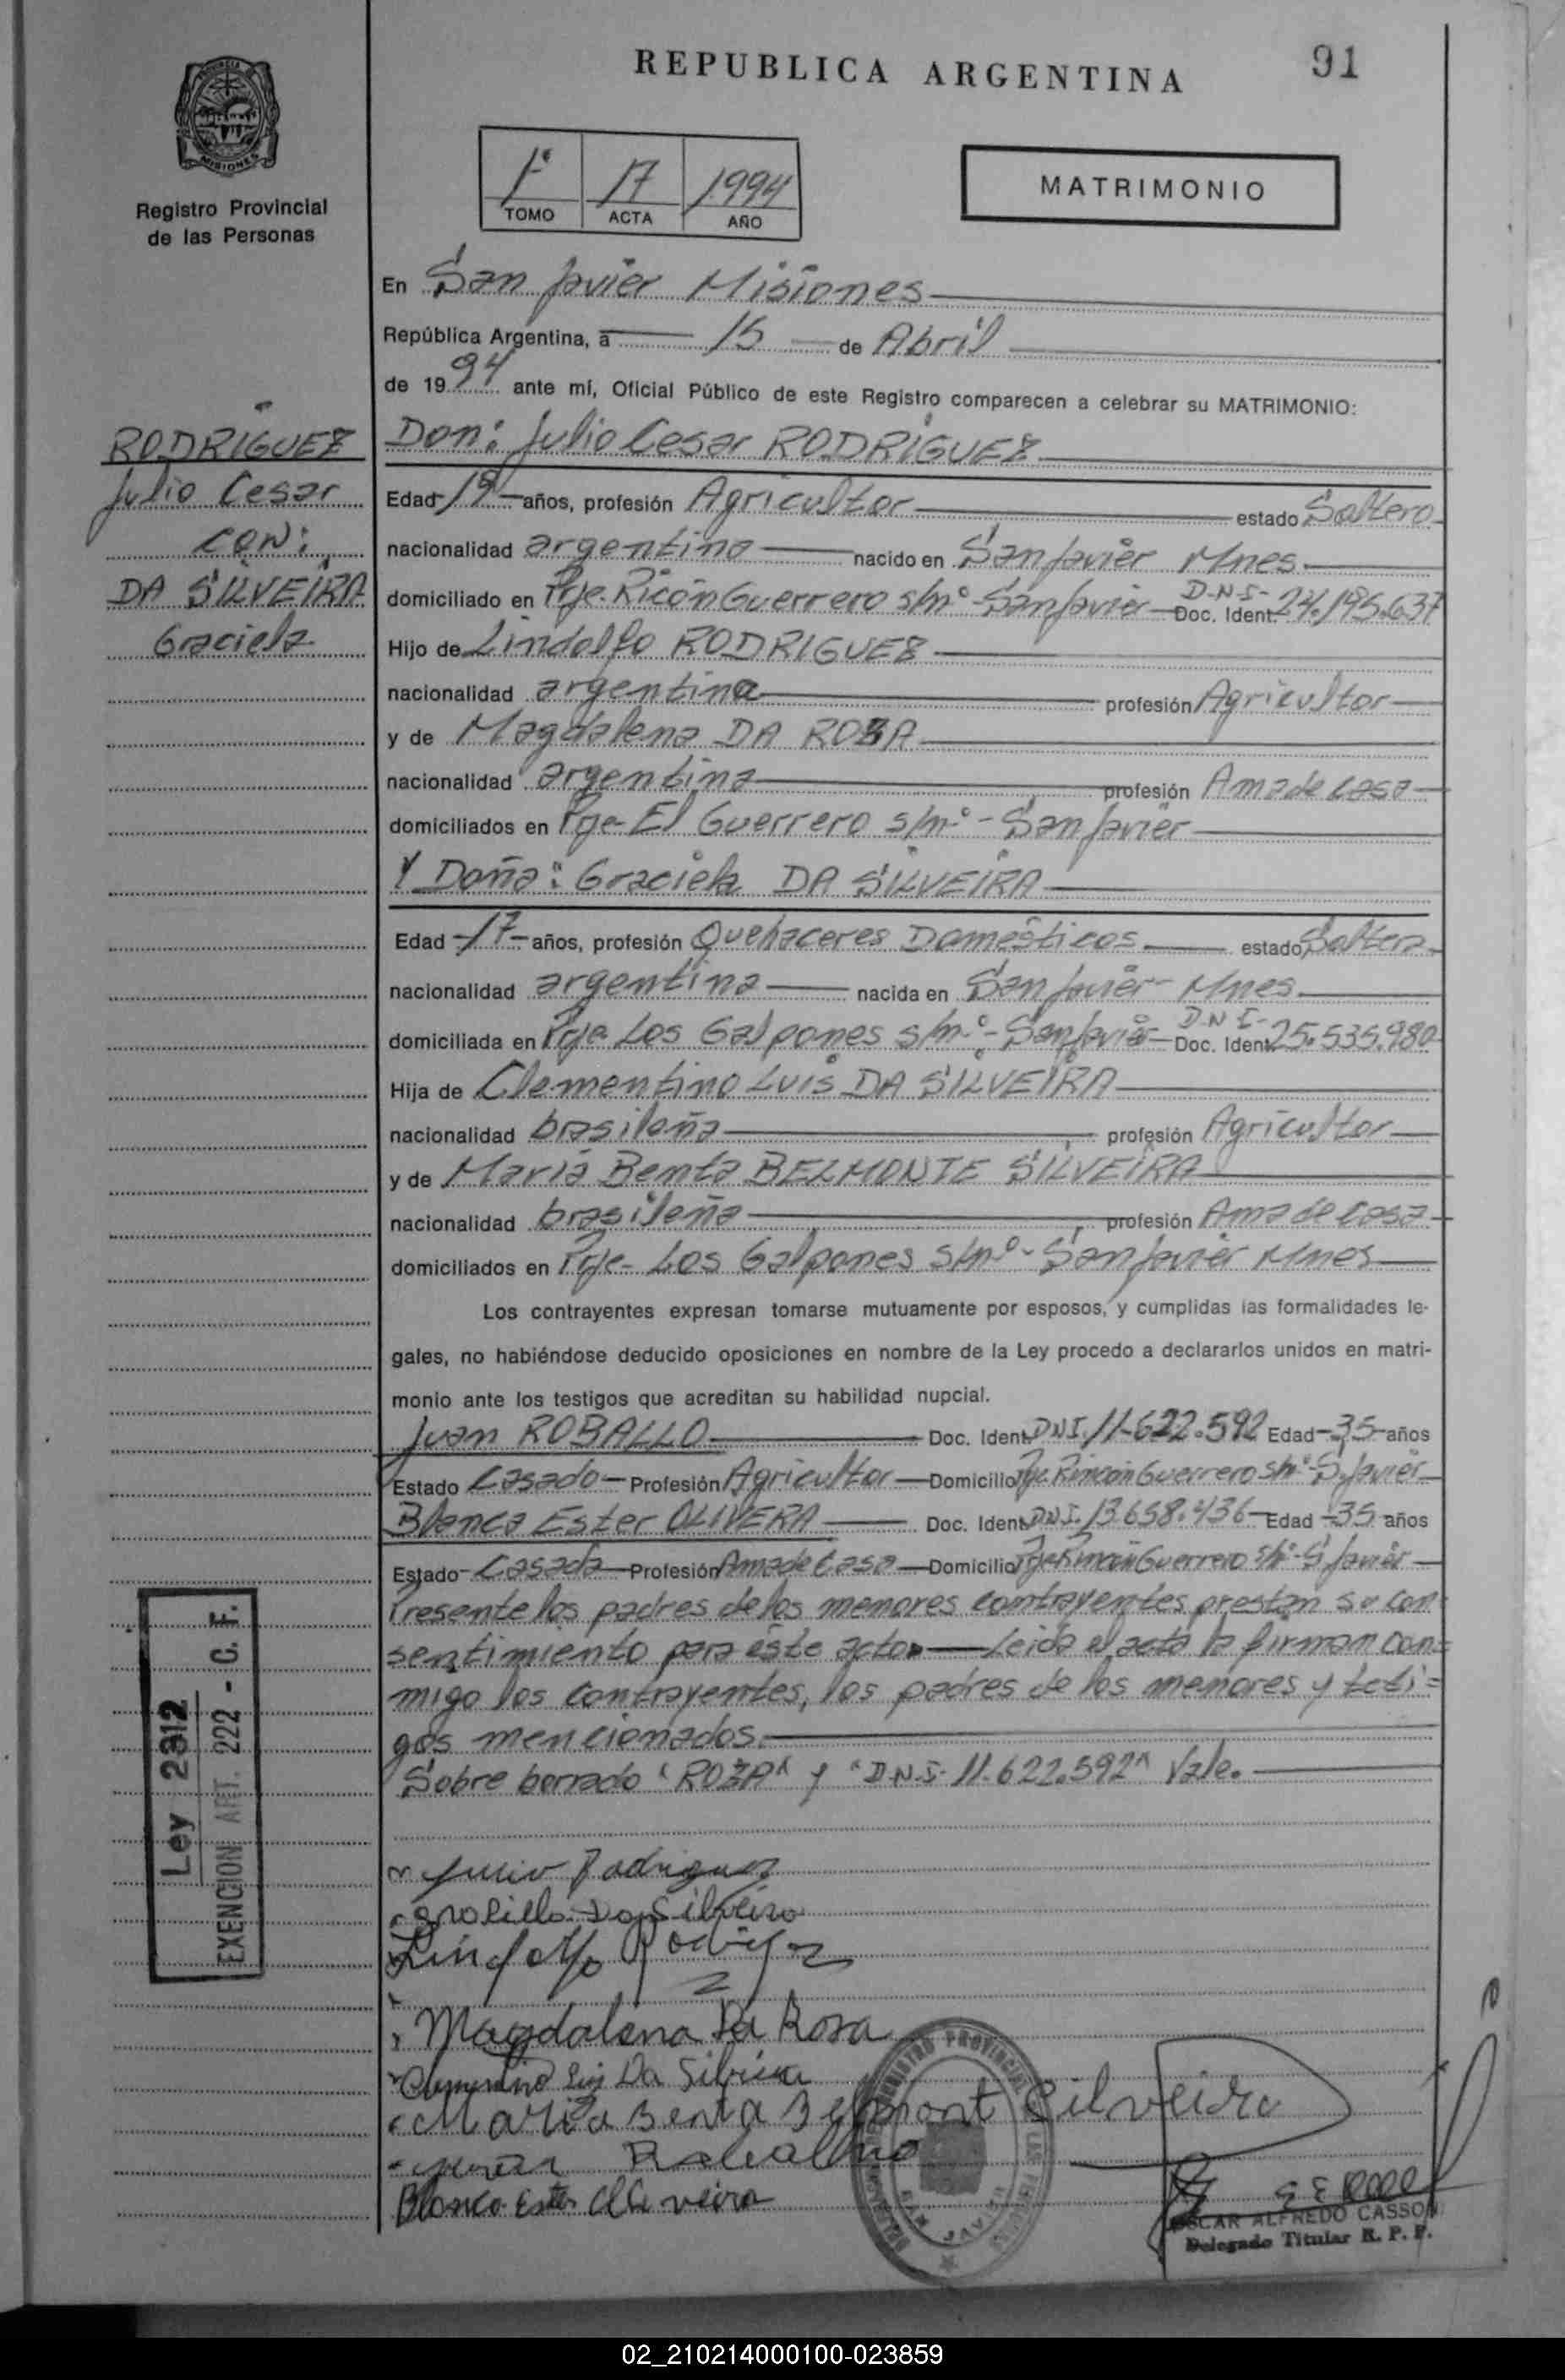 REPUBLICA ARGENTINA
91
PROVINCIA DE MISIONES
Registro Provincial
de las Personas
1º 17 1994
TOMO ACTA AÑO
MATRIMONIO
En San Javier Misiones
República Argentina, a 15 de Abril
de 1994 ante mí, Oficial Público de este Registro comparecen a celebrar su MATRIMONIO:
RODRIGUEZ
Julio Cesar
CON:
DA SILVEIRA
Graciela
Don: Julio Cesar RODRIGUEZ
Edad 19 años, profesión Agricultor estado Soltero
nacionalidad argentino nacido en San Javier Mnes.
domiciliado en Pje. Ricón Guerrero s/nº - San Javier D.N.I. Doc. Ident. 24.195.637
Hijo de Lindolfo RODRIGUEZ
nacionalidad argentina profesión Agricultor
y de Magdalena DA ROZA
nacionalidad argentina profesión Ama de casa
domiciliados en Pje- El Guerrero s/nº - San Javier
Y Doña: Graciela DA SILVEIRA
Edad 17 años, profesión Quehaceres Domésticos estado Soltera
nacionalidad argentina nacida en San Javier - Mnes.
domiciliada en Pje Los Galpones s/nº - San Javier D.N.I. Doc. Ident. 25.535.980
Hija de Clementino Luis DA SILVEIRA
nacionalidad brasileña profesión Agricultor
y de Maria Benta BELMONTE SILVEIRA
nacionalidad brasileña profesión Ama de casa
domiciliados en Pje- Los Galpones s/nº - San Javier Mnes
Los contrayentes expresan tomarse mutuamente por esposos, y cumplidas las formalidades le-
gales, no habiéndose deducido oposiciones en nombre de la Ley procedo a declararlos unidos en matri-
monio ante los testigos que acreditan su habilidad nupcial.
Juan ROBALLO Doc. Ident. DNI. 11.622.592 Edad 35 años
Estado Casado Profesión Agricultor Domicilio Pje Rincón Guerrero s/nº - S. Javier
Blanca Ester OLIVERA Doc. Ident. DNI. 13.658.436 Edad 35 años
Estado Casada Profesión Ama de Casa Domicilio Pje Rincón Guerrero s/nº - S. Javier
Presente los padres de los menores contrayentes prestan su con-
sentimiento para éste acto. Leida el acta la firman con=
migo los contrayentes, los padres de los menores y testi=
gos mencionados.
Sobre borrado "ROZA" y "D.N.I. 11.622.592" Vale.
Ley 2312
EXENCION ART. 222 - C. F.
Julio Rodriguez
Lindolfo Rodriguez
Magdalena Da Rosa
Maria Benta Belmont Silveira
OSCAR ALFREDO CASSON
Delegado Titular R. P. P.
02_210214000100-023859